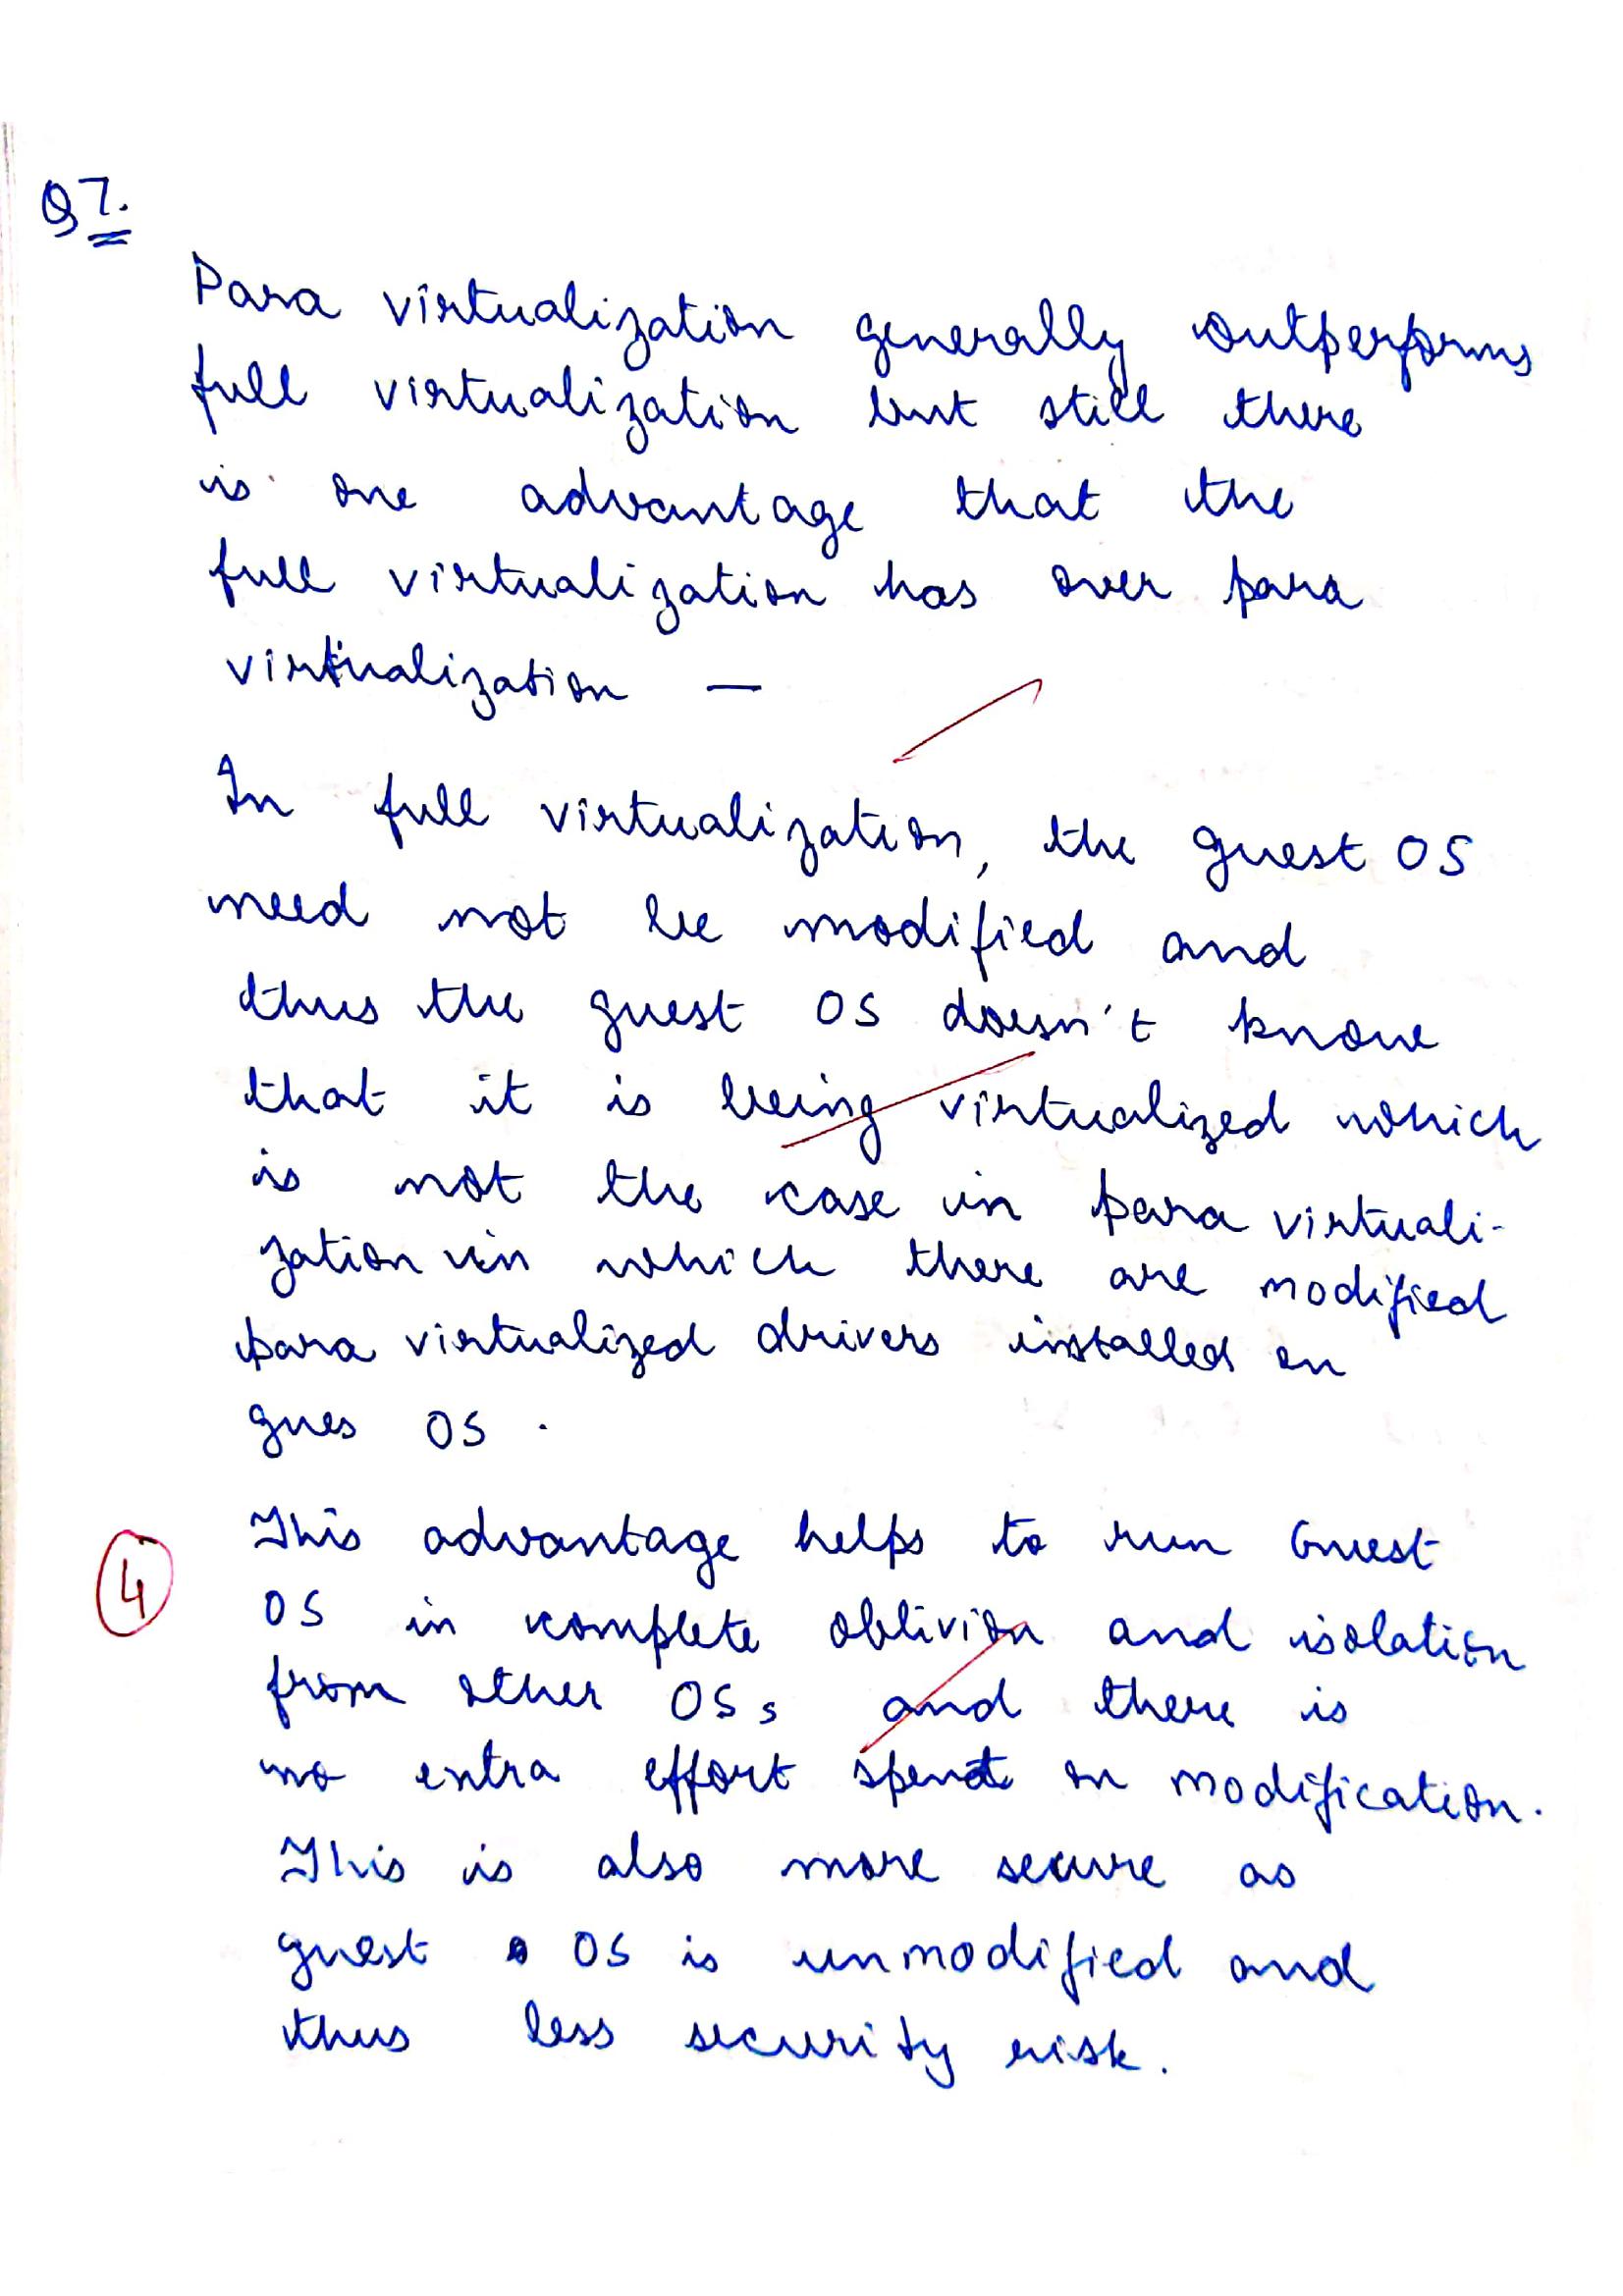 Q7.
Para virtualization generally outperforms
full virtualization but still there
is one advantage that the
full virtualization has over para
virtualization —
In full virtualization, the guest OS
need not be modified and
thus the guest OS doesn't know
that it is being virtualized which
is not the case in para virtuali-
zation in which there are modified
para virtualized drivers installed on
gues OS.
This advantage helps to run Guest
4
OS in complete oblivion and isolation
from other OSs and there is
no extra effort spent on modification.
This is also more secure as
guest OS is unmodified and
thus less security risk.